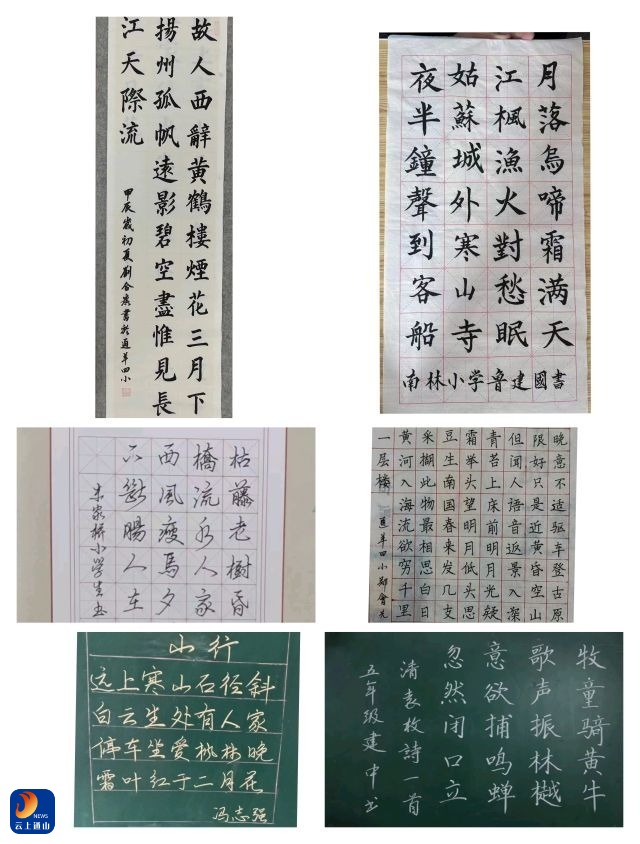 故人西辭黃鶴樓煙花三月下
揚州孤帆遠影碧空盡惟見長
江天際流
甲辰歲初夏劉合書於通羊四小
月落烏啼霜满天
江楓漁火對愁眠
姑蘇城外寒山寺
夜半鐘聲到客船
南林小学鲁建國書
枯藤老樹昏
橋流水人家
西風瘦馬夕
下斷腸人在
朱家桥小學生书
晚意不适驱车登古原
限好只是近黄昏空山
但闻人语音返景入深
青苔上床前明月光疑
霜举头望明月低头思
豆生南国春来发几支
采撷此物最相思白日
黄河入海流欲穷千里
一层楼 通羊四小郑會
山行
远上寒山石径斜
白云生处有人家
停车坐爱枫林晚
霜叶红于二月花
冯志强
牧童骑黄牛
歌声振林樾
意欲捕鸣蝉
忽然闭口立
清袁枚詩一首
五年级建中书
NEWS
云上通山